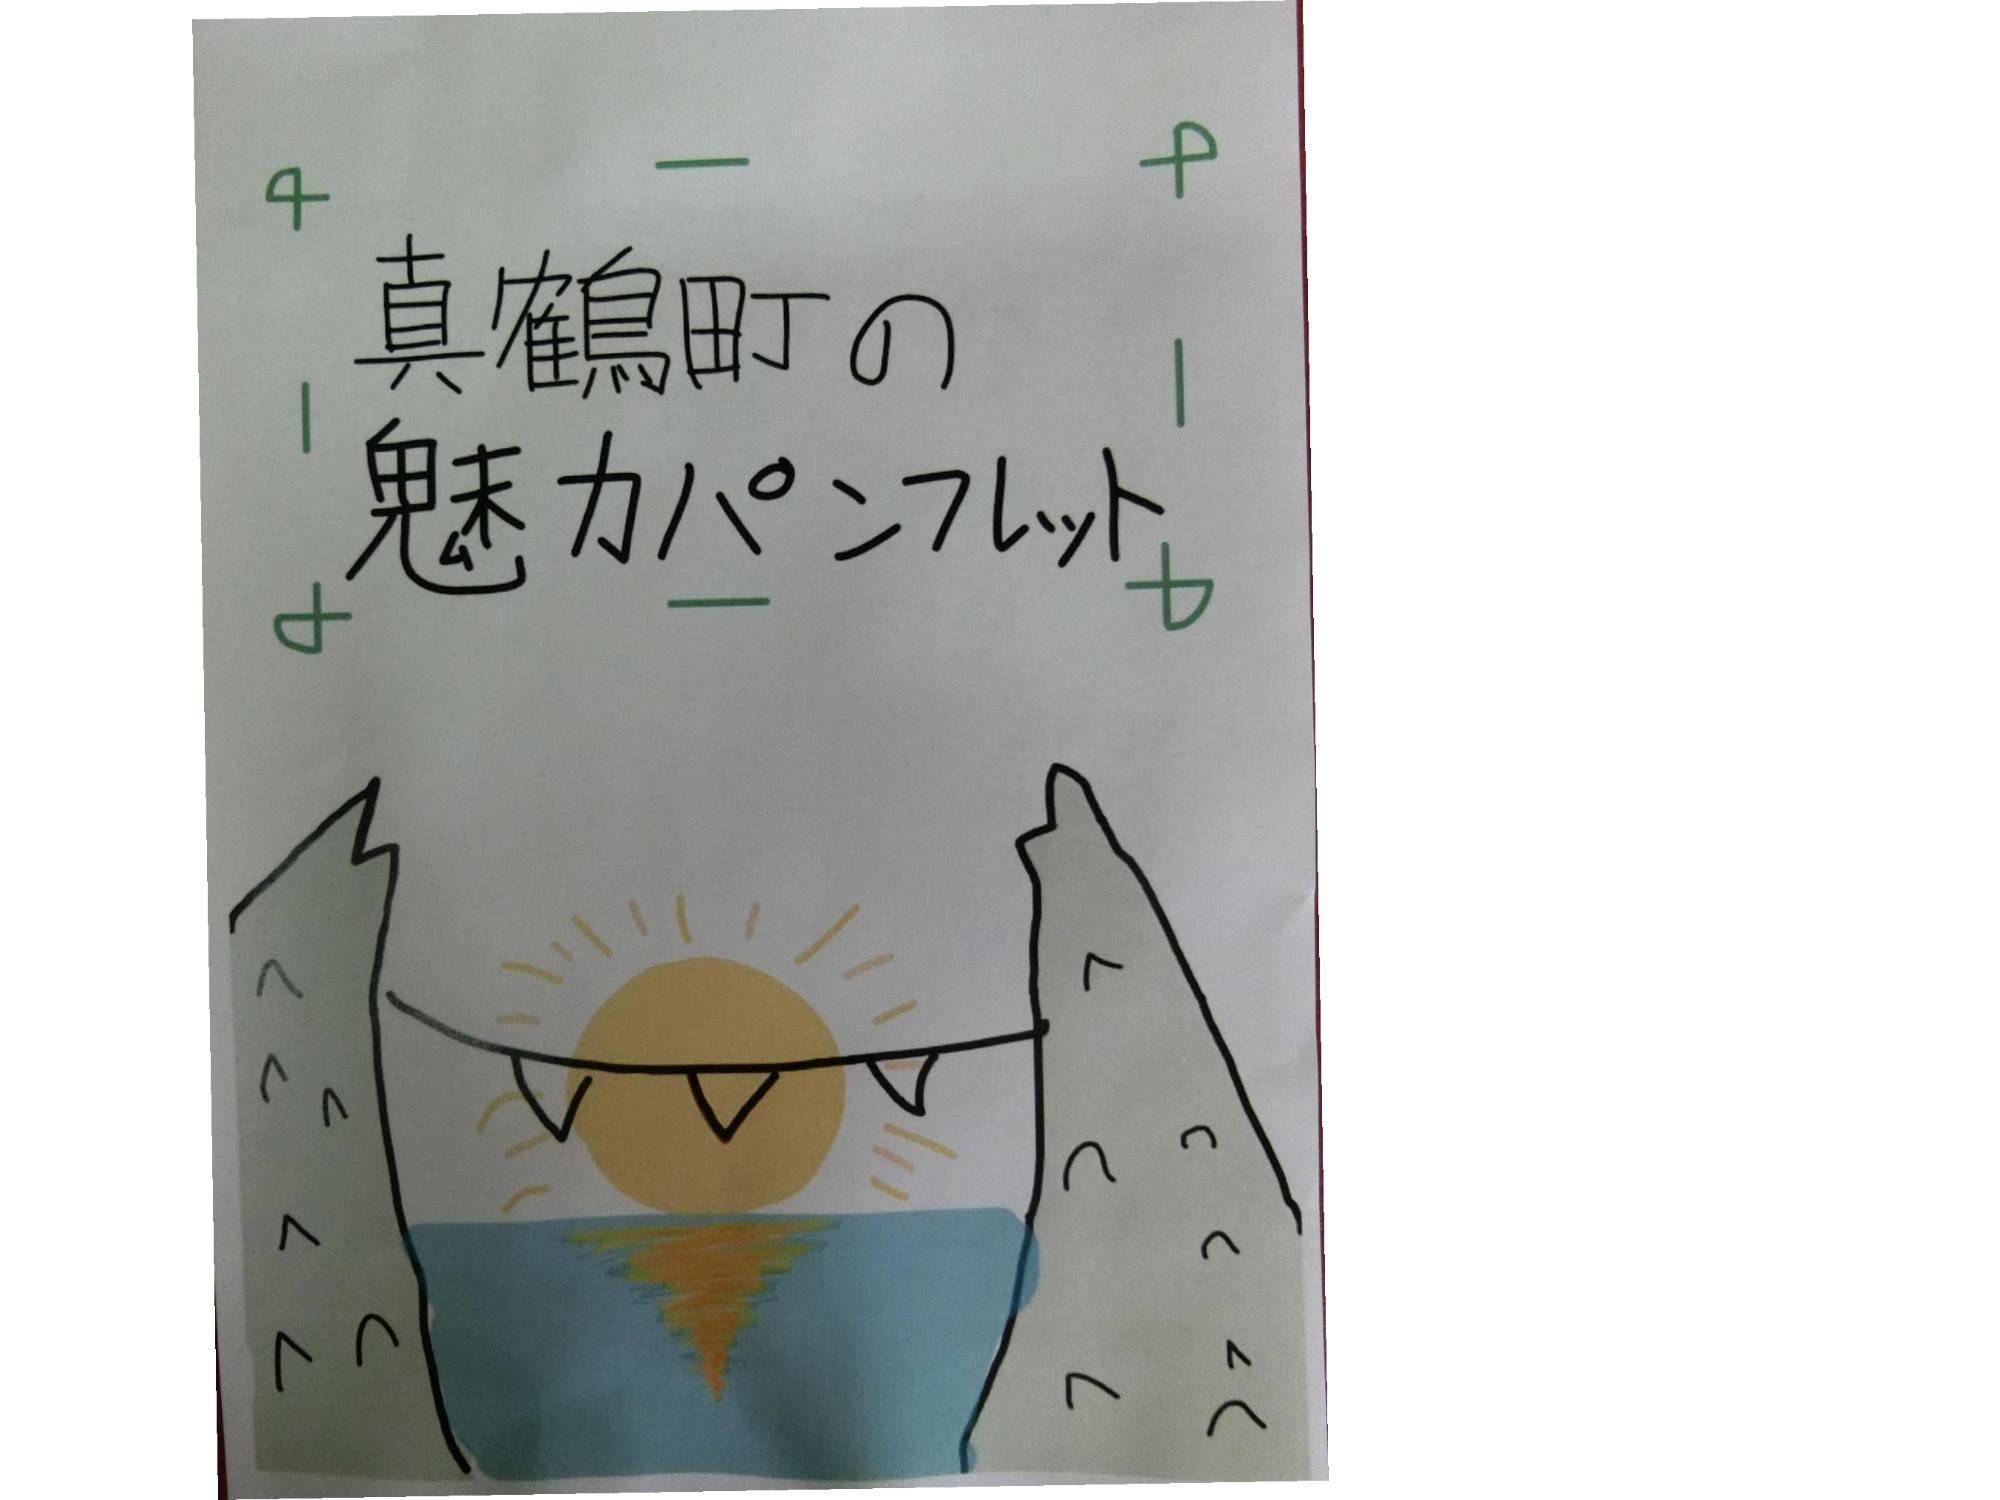 真鶴町の
魅力パンフレット